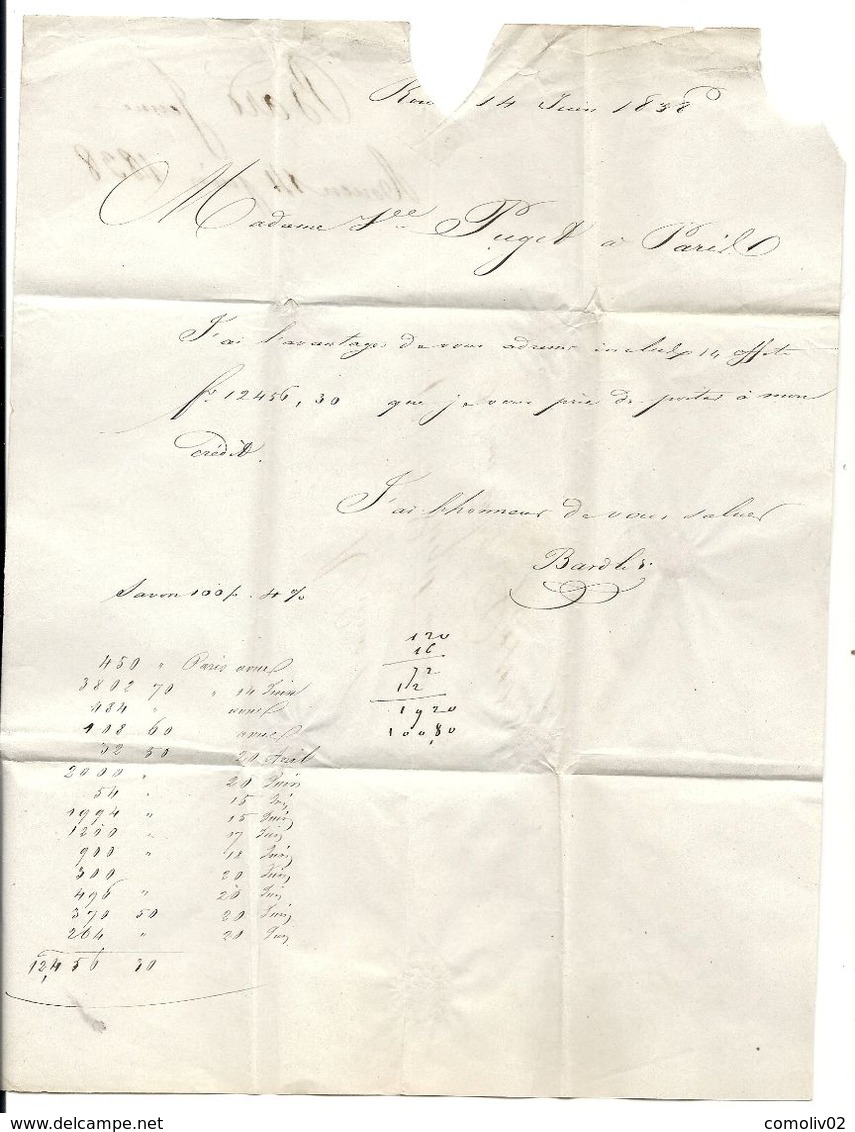 Rou 14 Juin 1838
Madame Vve Puget à Paris
J'ai l'avantage de vous adresser inclus 14 effets
fs 12456,30 que je vous prie de porter à mon
crédit.
J'ai l'honneur de vous saluer
Bard
Savon 100 f. 4 %
120
16
72
12
1920
100,80
450 " Paris
3802 70 " 14 Juin
484 "
108 60
32 50 20 Avril
2000 " 20 Juin
54 15 Juin
1994 " 15 Juin
1200 " 17 Juin
900 " 18 Juin
300 20 Juin
496 " 20 Juin
370 50 20 Juin
264 " 20 Juin
12,456 30
comoliv02